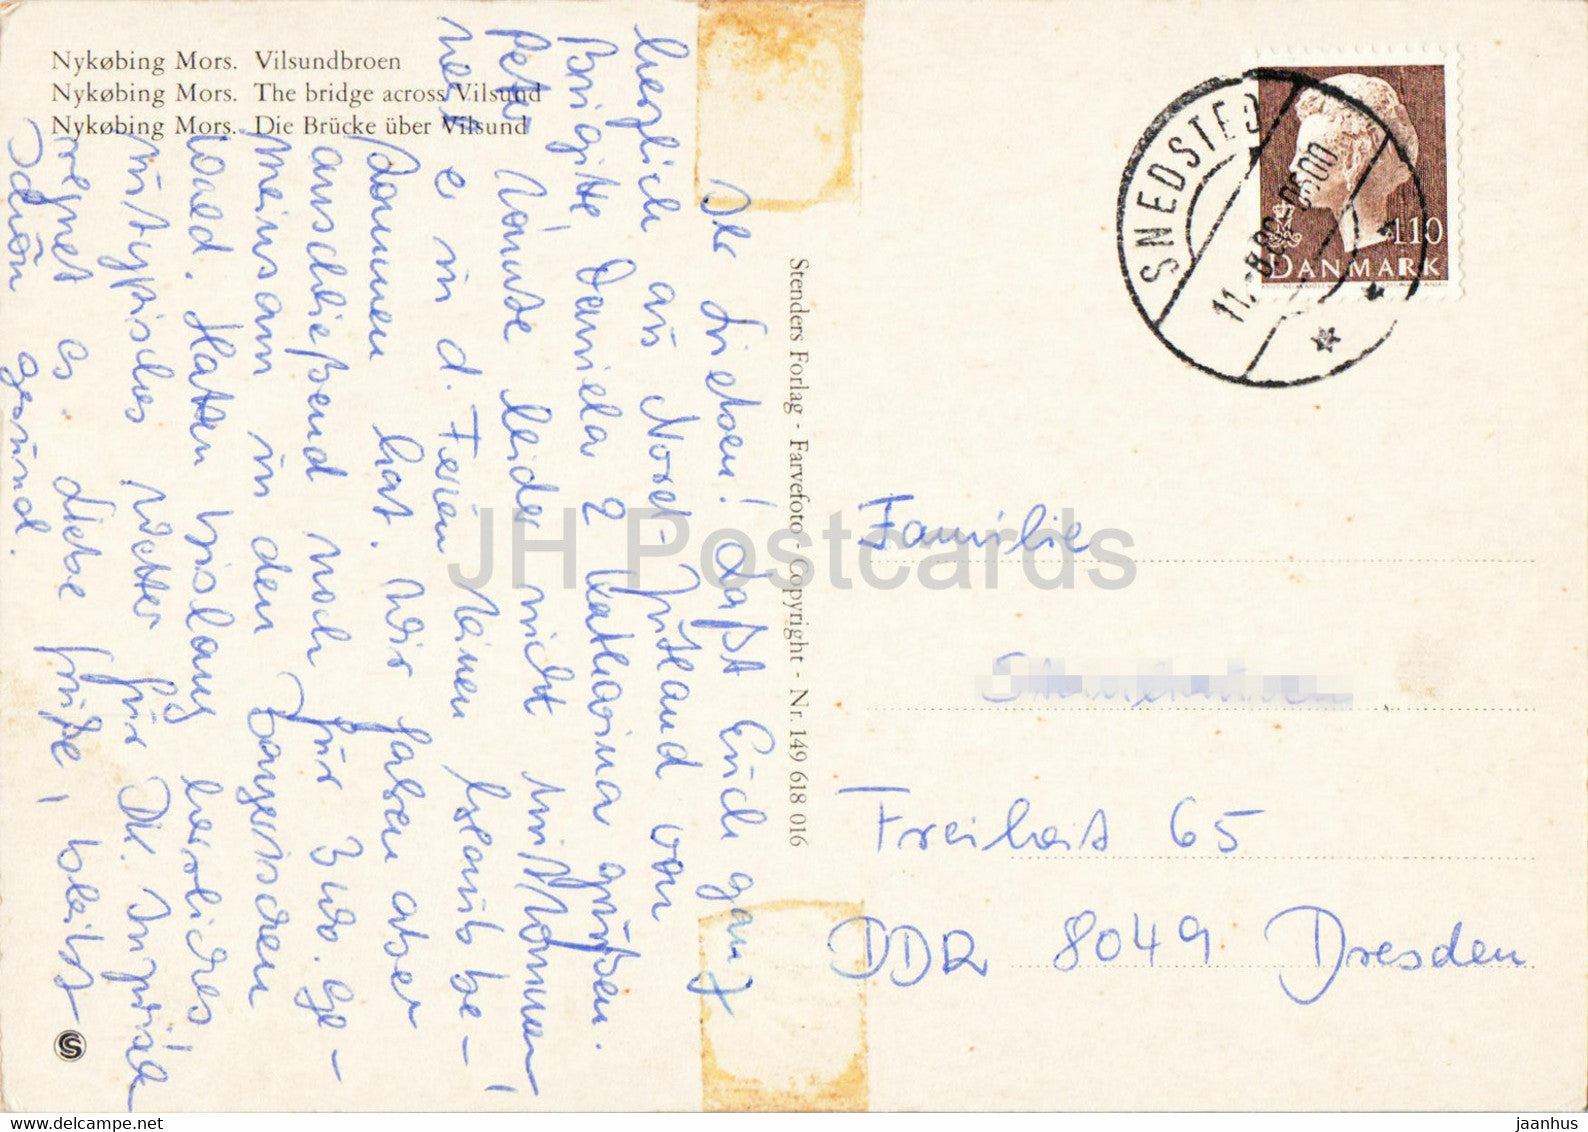 Nykøbing Mors. Vilsundbroen
Nykøbing Mors. The bridge across Vilsund
Nykøbing Mors. Die Brücke über Vilsund
Ihr Lieben! Laßt Euch ganz
herzlich aus Nord-Jütland von
Brigitte Daniela & Katharina grüßen.
Peter konnte leider nicht mitkommen,
weil er in d. Ferien keinen Urlaub be-
kommen hat. Wir fahren aber
anschließend noch für 3 Wo. ge-
meinsam in den Bayerischen
Wald. Hatten bislang herrliches
untypisches Wetter für DK. Inzwischen
regnet es. Liebe Grüße, bleibt
schön gesund.
Stenders Forlag - Farvefoto - Copyright - Nr. 149 618 016
SNEDSTED
06.00
110
DANMARK
Familie
Freiheit 65
DDR 8049 Dresden
JH Postcards
delcampe.net
jaanhus